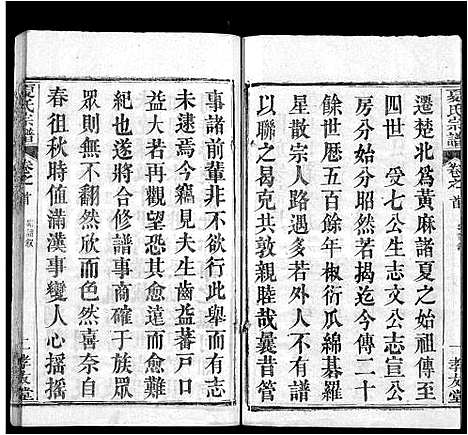 夏氏宗譜
卷之首
一
孝友堂
遷楚北為黃麻諸夏之始祖傳至
四世　受七公生志文公志宣公
房分始祖也迄今傳二十
餘世歷五百餘年椒衍瓜綿碁羅
星散宗人路遇多若外人不有譜
以聯之何以共敦親睦哉曩昔管
事諸前輩非不欲行此舉而有志
未逮焉今軀見夫生齒益蕃戸口
益大者形勢恐其愈遠而愈難
紀也遂將合修譜事商確于族眾
眾則無不翻然改色欣然喜奈自
春徂秋時值滿漢事變人心搖搖
夏氏宗譜
卷之首
二
孝友堂